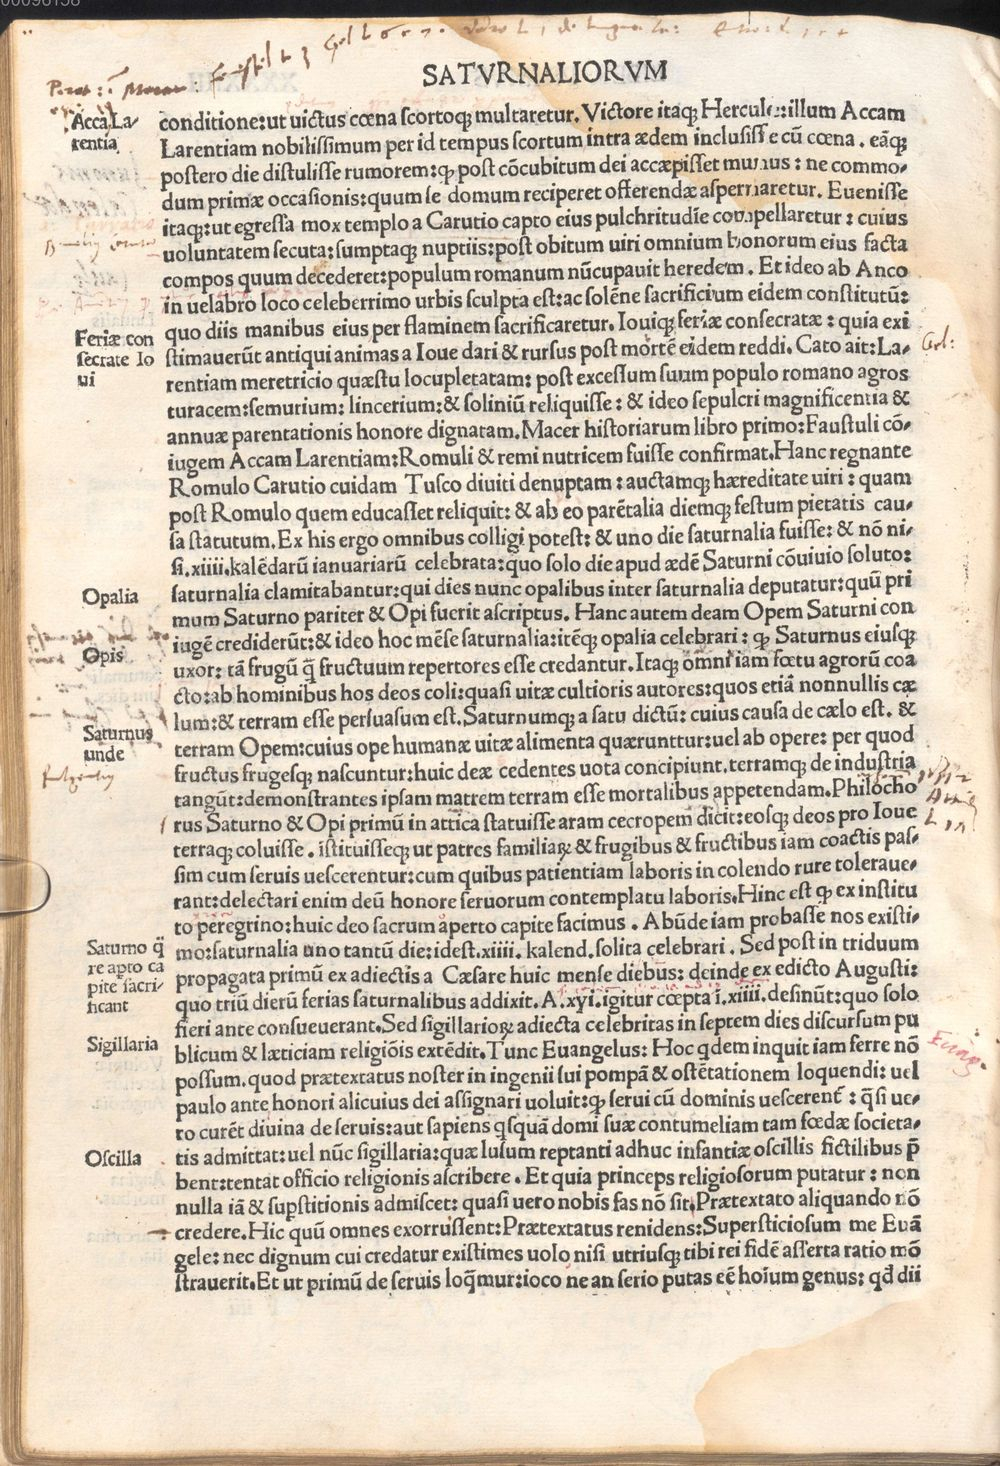 00096158
SATVRNALIORVM
Acca La-
rentia
conditione:ut uictus cœna scortoqȝ multaretur. Victore itaqȝ Hercule:illum Accam
Larentiam nobilissimum per id tempus scortum intra ædem inclusisse cū cœna. eāqȝ
postero die distulisse rumorem:ꝙ post cōcubitum dei accæpisset munus: ne commo-
dum primæ occasionis:quum se domum reciperet offerendæ aspernaretur. Euenisse
itaqȝ:ut egressa mox templo a Carutio capto eius pulchritudīe compellaretur: cuius
uoluntatem secuta:sumptaqȝ nuptiis:post obitum uiri omnium bonorum eius facta
compos quum decederet:populum romanum nūcupauit heredem. Et ideo ab Anco
in uelabro loco celeberrimo urbis sculpta est:ac solēne sacrificium eidem constitutū:
Feriæ con
secrate Io
ui
quo diis manibus eius per flaminem sacrificaretur. Iouiqȝ feriæ consecratæ: quia exi
stimauerūt antiqui animas a Ioue dari & rursus post mortē eidem reddi. Cato ait:La-
rentiam meretricio quæstu locupletatam: post excessum suum populo romano agros
turacem:semurium: lincerium:& soliniū reliquisse: & ideo sepulcri magnificentia &
annuæ parentationis honore dignatam. Macer historiarum libro primo:Faustuli cō-
iugem Accam Larentiam:Romuli & remi nutricem fuisse confirmat. Hanc regnante
Romulo Carutio cuidam Tusco diuiti denuptam: auctamqȝ hæreditate uiri: quam
post Romulo quem educasset reliquit: & ab eo parētalia diemqȝ festum pietatis cau-
sa statutum. Ex his ergo omnibus colligi potest: & uno die saturnalia fuisse: & nō ni-
si.xiiii.kalēdarū ianuariarū celebrata:quo solo die apud ædē Saturni cōuiuio soluto:
Opalia
saturnalia clamitabantur:qui dies nunc opalibus inter saturnalia deputatur:quū pri
mum Saturno pariter & Opi fuerit ascriptus. Hanc autem deam Opem Saturni con
iugē crediderūt:& ideo hoc mēse saturnalia:itēqȝ opalia celebrari: ꝙ Saturnus eiusqȝ
Opis
uxor: tā frugū q̄ fructuum repertores esse credantur. Itaqȝ omni iam fœtu agrorū coa
cto:ab hominibus hos deos coli:quasi uitæ cultioris autores:quos etiā nonnullis cæ
lum:& terram esse persuasum est. Saturnumqȝ a satu dictū: cuius causa de cælo est. &
Saturnus
unde
terram Opem:cuius ope humanæ uitæ alimenta quærunttur:uel ab opere: per quod
fructus frugesqȝ nascuntur:huic deæ cedentes uota concipiunt.terramqȝ de industria
tangūt:demonstrantes ipsam matrem terram esse mortalibus appetendam. Philocho
rus Saturno & Opi primū in attica statuisse aram cecropem dicit:eosqȝ deos pro Ioue
terraqȝ coluisse. īstituisseqȝ ut patres familiaꝝ & frugibus & fructibus iam coactis pas-
sim cum seruis uescerentur:cum quibus patientiam laboris in colendo rure toleraue-
rant:delectari enim deū honore seruorum contemplatu laboris. Hinc est ꝙ ex institu
to peregrino:huic deo sacrum aperto capite facimus. Abūde iam probasse nos existi-
Saturno q̄
re apto ca
pite sacri-
ficant
mo:saturnalia uno tantū die:idest.xiiii. kalend.solita celebrari. Sed post in triduum
propagata primū ex adiectis a Cæsare huic mense diebus: deinde ex edicto Augusti:
quo triū dierū ferias saturnalibus addixit. A.xyi.igitur cœpta ī.xiiii.desinūt:quo solo
fieri ante consueuerant. Sed sigillarioꝝ adiecta celebritas in septem dies discursum pu
Sigillaria
blicum & læticiam religiōis extēdit. Tunc Euangelus: Hoc qdem inquit iam ferre nō
possum.quod prætextatus noster in ingenii sui pompā & ostētationem loquendi: uel
paulo ante honori alicuius dei assignari uoluit:ꝙ serui cū dominis uescerent̄: q̄si ue-
ro curēt diuina de seruis:aut sapiens qsquā domi suæ contumeliam tam fœdæ societa-
Oscilla
tis admittat:uel nūc sigillaria:quæ lusum reptanti adhuc infantiæ oscillis fictilibus p̄
bent:tentat officio religionis ascribere. Et quia princeps religiosorum putatur: non
nulla iā & supstitionis admiscet: quasi uero nobis fas nō sit. Prætextato aliquando nō
credere. Hic quū omnes exorrussent:Prætextatus renidens:Supersticiosum me Euā
gele: nec dignum cui credatur existimes uolo nisi utriusqȝ tibi rei fidē asserta ratio mō
strauerit. Et ut primū de seruis loq̄mur:ioco ne an serio putas eē hoīum genus: qd̄ dii